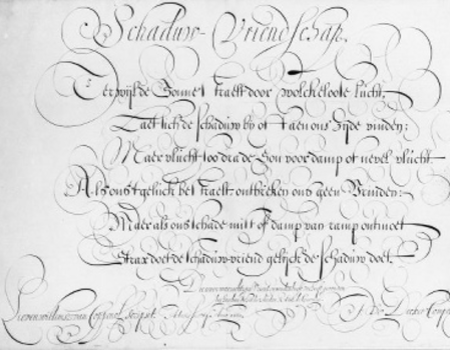 Schaduw-Vriendschap.
Terwijl de Sonne straelt door wolckeloose lucht,
Laet sich de schaduw by of aen ons zijde vinden:
Maer vlucht soo dra de Son voor damp of nevel vlucht
Als ons 't geluck bestraelt ontbreken ons geen Vrinden:
Maer als ons schade mist of damp van ramp ontmoet
Strax doet de schaduw-vriend gelyck de schaduw doet.
scripsit